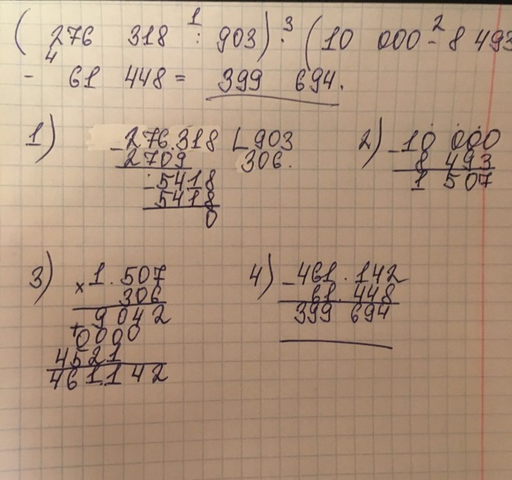 (276 318 : 903) · (10 000 - 8 493
- 61 448 = 399 694.
1 3 2
4
1) - 276.318 903
2709 306.
- 5418
5418
0
2) - 10 000
8 493
1 507
3) × 1.507
306
+ 9042
0000
4521
461.142
4) - 461.142
61.448
399 694